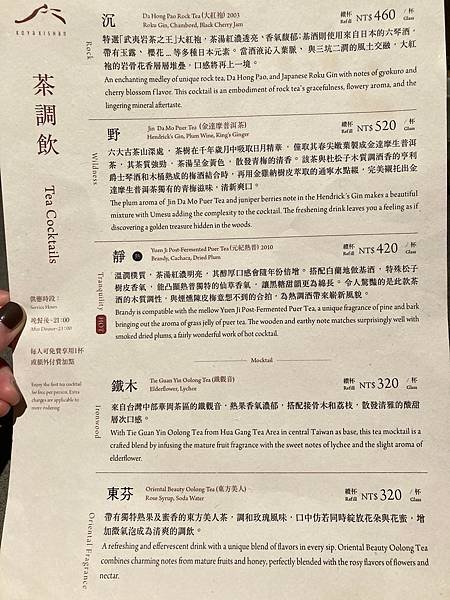 KUYAKISHAN
茶調飲
Tea Cocktails
供應時段：
Service Hours
晚餐後~21:00
After Dinner~21:00
每人可免費享用1杯
或額外付費加點
Enjoy the first tea cocktail
for free per person. Extra
charges are applicable to
more ordering
沉
Rock
Da Hong Pao Rock Tea (大紅袍) 2003
Roku Gin, Chambord, Black Cherry Jam
續杯 Refill NT$ 460 /杯 Glass
特選「武夷岩茶之王」大紅袍，茶湯紅濃透亮，香氣馥郁；基酒則使用來自日本的六琴酒，
帶有玉露、櫻花…等多種日本元素。當酒液沁入葉脈，與三坑二澗的風土交融，大紅
袍的岩骨花香層層堆疊，口感將再上一境。
An enchanting medley of unique rock tea, Da Hong Pao, and Japanese Roku Gin with notes of gyokuro and
cherry blossom flavor. This cocktail is an embodiment of rock tea's gracefulness, flowery aroma, and the
lingering mineral aftertaste.
野
Wildness
Jin Da Mo Puer Tea (金達摩普洱茶)
Hendrick's Gin, Plum Wine, King's Ginger
續杯 Refill NT$ 520 /杯 Glass
六大古茶山深處，茶樹在千年歲月中吸取日月精華，僅取其春尖嫩葉製成金達摩普洱
茶，其茶質強勁，茶湯呈金黃色，散發青梅的清香。該茶與杜松子木質調酒香的亨利
爵士琴酒和木桶熟成的梅酒結合時，再用金雞納樹皮萃取的通寧水點綴，完美襯托出金
達摩生普洱茶獨有的青梅滋味，清新爽口。
The plum aroma of Jin Da Mo Puer Tea and juniper berries note in the Hendrick's Gin makes a beautiful
mixture with Umesu adding the complexity to the cocktail. The freshening drink leaves you a feeling as if
discovering a golden treasure hidden in the woods.
靜
熱
Tranquility HOT
Yuen Ji Post-Fermented Puer Tea (元紀熟普) 2010
Brandy, Cachaca, Dried Plum
續杯 Refill NT$ 420 /杯 Glass
溫潤樸質，茶湯紅濃明亮，其醇厚口感會隨年份倍增。搭配白蘭地做基酒，特殊松子
樹皮香氣，能凸顯熟普獨特的仙草香氣，讓黑糖甜韻更為綿長。令人驚豔的是此款茶
酒的木質調性，與煙燻陳皮梅意想不到的合拍，為熟調酒帶來嶄新風貌。
Brandy is compatible with the mellow Yuen Ji Post-Fermented Puer Tea, a unique fragrance of pine and bark
bringing out the aroma of grass jelly of puer tea. The wooden and earthy note matches surprisingly well with
smoked dried plums, a fairly wonderful work of hot cocktail.
Mocktail
鐵木
Ironwood
Tie Guan Yin Oolong Tea (鐵觀音)
Elderflower, Lychee
續杯 Refill NT$ 320 /杯 Glass
來自台灣中部華岡茶區的鐵觀音，熟果香氣濃郁，搭配接骨木和荔枝，散發清雅的酸甜
層次口感。
With Tie Guan Yin Oolong Tea from Hua Gang Tea Area in central Taiwan as base, this tea mocktail is a
crafted blend by infusing the mature fruit fragrance with the sweet notes of lychee and the slight aroma of
elderflower.
東芬
Oriental Fragrance
Oriental Beauty Oolong Tea (東方美人)
Rose Syrup, Soda Water
續杯 Refill NT$ 320 /杯 Glass
帶有獨特熟果及蜜香的東方美人茶，調和玫瑰風味，口中仿若同時綻放花朵與花蜜，增
加微氣泡成為清爽的調飲。
A refreshing and effervescent drink with a unique blend of flavors in every sip. Oriental Beauty Oolong Tea
combines charming notes from mature fruits and honey, perfectly blended with the rosy flavors of flowers and
nectar.